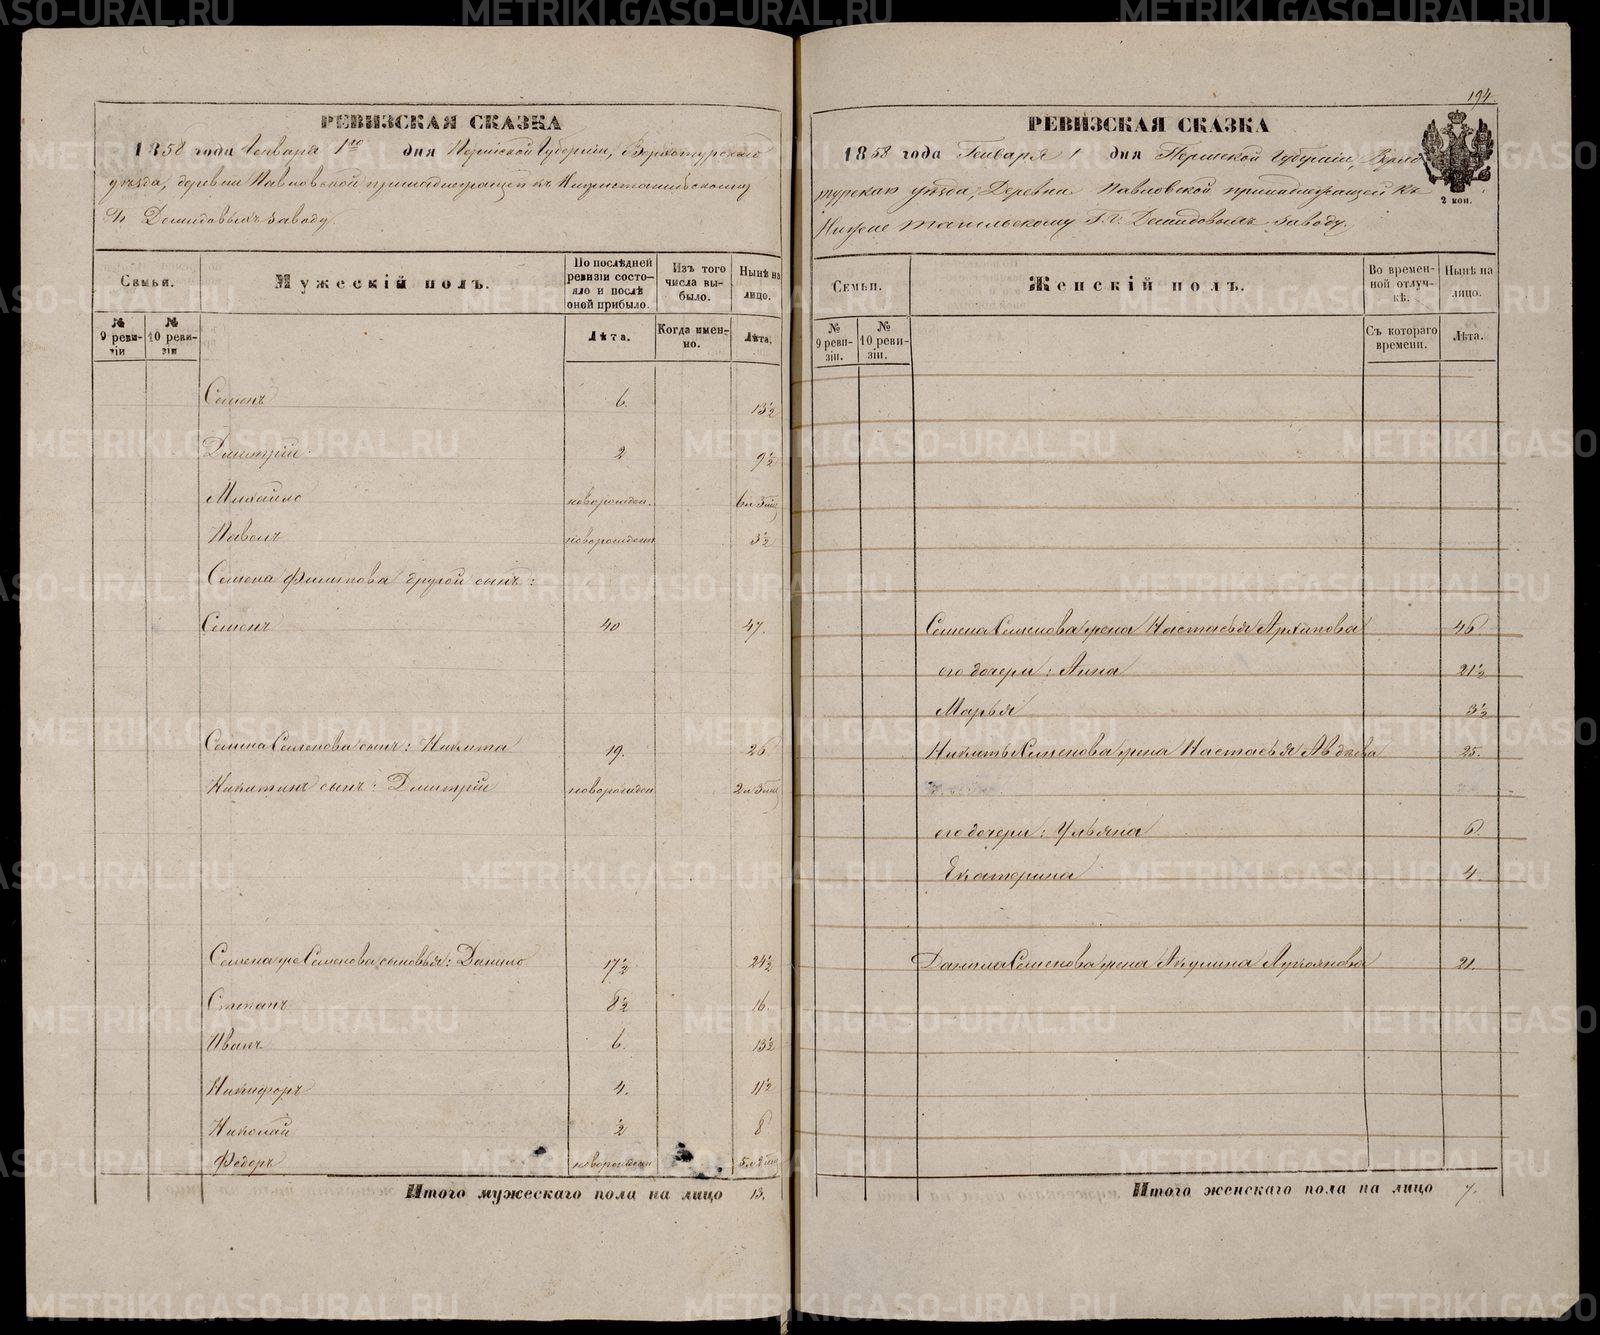 РЕВИЗСКАЯ СКАЗКА
1858 года Генваря 1го дня Пермской Губернии, Верхотурскаго
уѣзда, деревни Павловской принадлежащей къ Нижнетагильскому
Гг Демидовыхъ заводу.
Семьи.
Мужескій полъ.
По послѣдней ревизіи состояло и послѣ оной прибыло.
Изъ того числа выбыло.
Нынѣ на лицо.
№ 9 ревизіи
№ 10 ревизіи
Лѣта.
Когда именно.
Лѣта.
Семенъ 6. 13½
Дмитрій 2 9½
Михайло новорожден. 6 л 3 мѣс
Павелъ новорожден 3½
Семена Филипова другой сынъ:
Семенъ 40 47.
Семена Семенова сынъ: Никита 19. 26
Никитинъ сынъ: Дмитрій новорожден 2 л 3 мѣс
Семена же Семенова сыновья: Данило 17½ 24½
Степанъ 8½ 16.
Иванъ 6. 13½
Никифоръ 4. 11½
Николай ½ 8
Федоръ новорожден 5 л 2 мѣс
Итого мужескаго пола на лицо 13.
194.
РЕВИЗСКАЯ СКАЗКА
1858 года Генваря 1 дня Пермской Губернии, Верхо
турскаго уѣзда, Деревни Павловской принадлежащей къ
Нижне тагильскому Г.г. Демидовыхъ заводу.
2 коп.
Семьи.
Женскій полъ.
Во временной отлучкѣ.
Нынѣ на лицо.
№ 9 ревизіи.
№ 10 ревизіи.
Съ котораго времени.
Лѣта.
Семена Семенова жена Настасья Архипова 46
его дочери: Анна 21½
Марья 3½
Никиты Семенова жена Настасья Авдѣева 25.
его дочери: Ульяна 6.
Екатерина 4.
Данила Семенова жена Акулина Лукоянова 21.
Итого женскаго пола на лицо 7.
METRIKI.GASO-URAL.RU